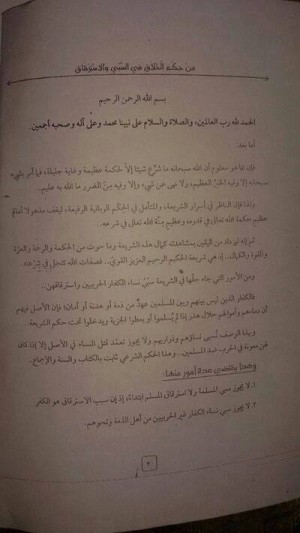 من حكم الخلاق في السبي والاسترقاق
بسم الله الرحمن الرحيم
الحمد لله رب العالمين، والصلاة والسلام على نبينا محمد وعلى آله وصحبه أجمعين.
أما بعد
فإن مما هو معلوم أن الله سبحانه ما شرع شيئا إلا لحكمة عظيمة وغاية جليلة، فما أمر بشيء
سبحانه إلا وفيه الخير العظيم، ولا نهى عن شيء إلا وفيه من الضرر ما الله به عليم.
ولهذا فإن الناظر في أسرار الشريعة، والمتأمل في الحكم الربانية الرفيعة، ليقف مذهولا أمام
عظيم حكمة الله تعالى في قدره وعظيم منة الله تعالى في شرعه.
ثم إنه ليزداد من اليقين بمشاهدة كمال هذه الشريعة وما حوت من الحكمة والرحمة والعزة
والقوة والكمال.. إذ هي شريعة الحكيم الرحيم العزيز القوي.. فصفات الله تتجلى في شرعه.
ومن الأمور التي جاء حلها في الشريعة سبي نساء الكفار الحربيين واسترقاقهن.
فالكفار الذين ليس بينهم وبين المسلمين عهد من ذمة أو هدنة أو أمان؛ فإن الأصل فيهم
أن دماءهم وأموالهم حلال هدر إذا لم يسلموا أو يعطوا الجزية ويدخلوا تحت حكم الشريعة.
وبهذا الوصف تسبى نساؤهم وذراريهم ولا يجوز تعمد قتل النساء في الأصل إلا إذا كان
لهن معونة في الحرب ضد المسلمين.. وهذا الحكم الشرعي ثابت بالكتاب والسنة والإجماع..
وهذا يقتضي عدة أمور منها:
١. لا يجوز سبي المسلمة ولا استرقاق المسلم ابتداء، إذ إن سبب الاسترقاق هو الكفر
٢. لا يجوز سبي نساء الكفار غير الحربيين من أهل الذمة ونحوهم.